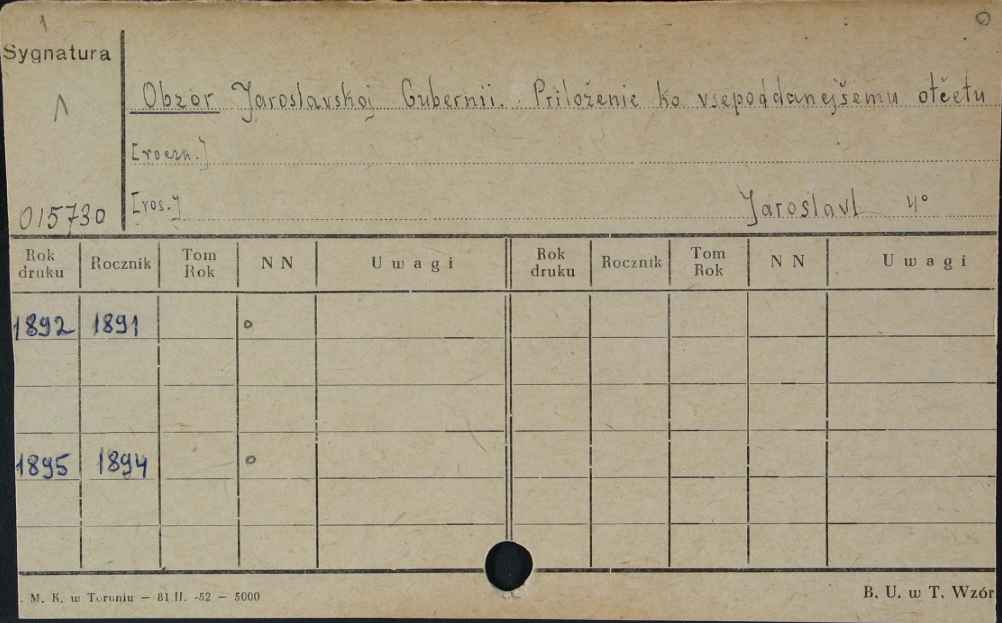 1
Sygnatura
Λ
015730
Obzor Jaroslavskoj Gubernii. Priloženie ko vsepoddanejšemu otčetu
[roczn.]
[ros.] Jaroslavl 4°
Rok druku Rocznik Tom Rok N N Uwagi Rok druku Rocznik Tom Rok N N Uwagi
1892 1891 o
1895 1894 o
M. K. w Toruniu — 81 II. -52 — 5000
B. U. w T. Wzór